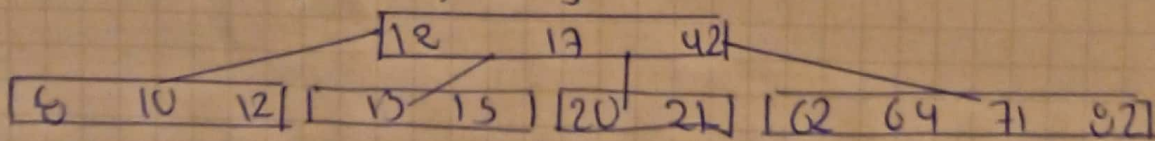 12 17 42
8 10 12 13 15 20 21 62 64 71 92